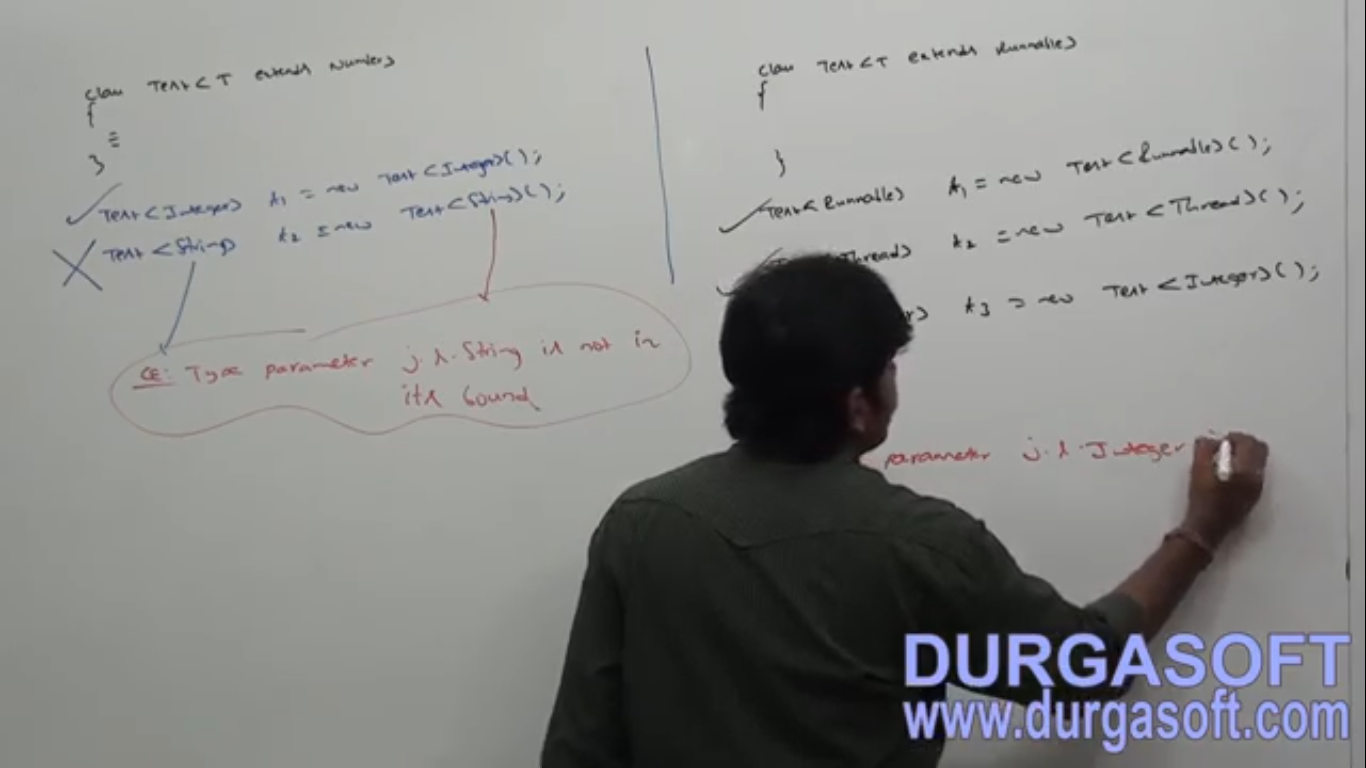 class Test<T extends Number>
{
≡
}
Test<Integer> t1 = new Test<Integer>();
Test<String> t2 = new Test<String>();
CE: Type parameter j.l.String is not in
its bound
class Test<T extends Runnable>
{
}
Test<Runnable> t1 = new Test<Runnable>();
Thread> t2 = new Test<Thread>();
t3 = new Test<Integer>();
parameter j.l.Integer
DURGASOFT
www.durgasoft.com